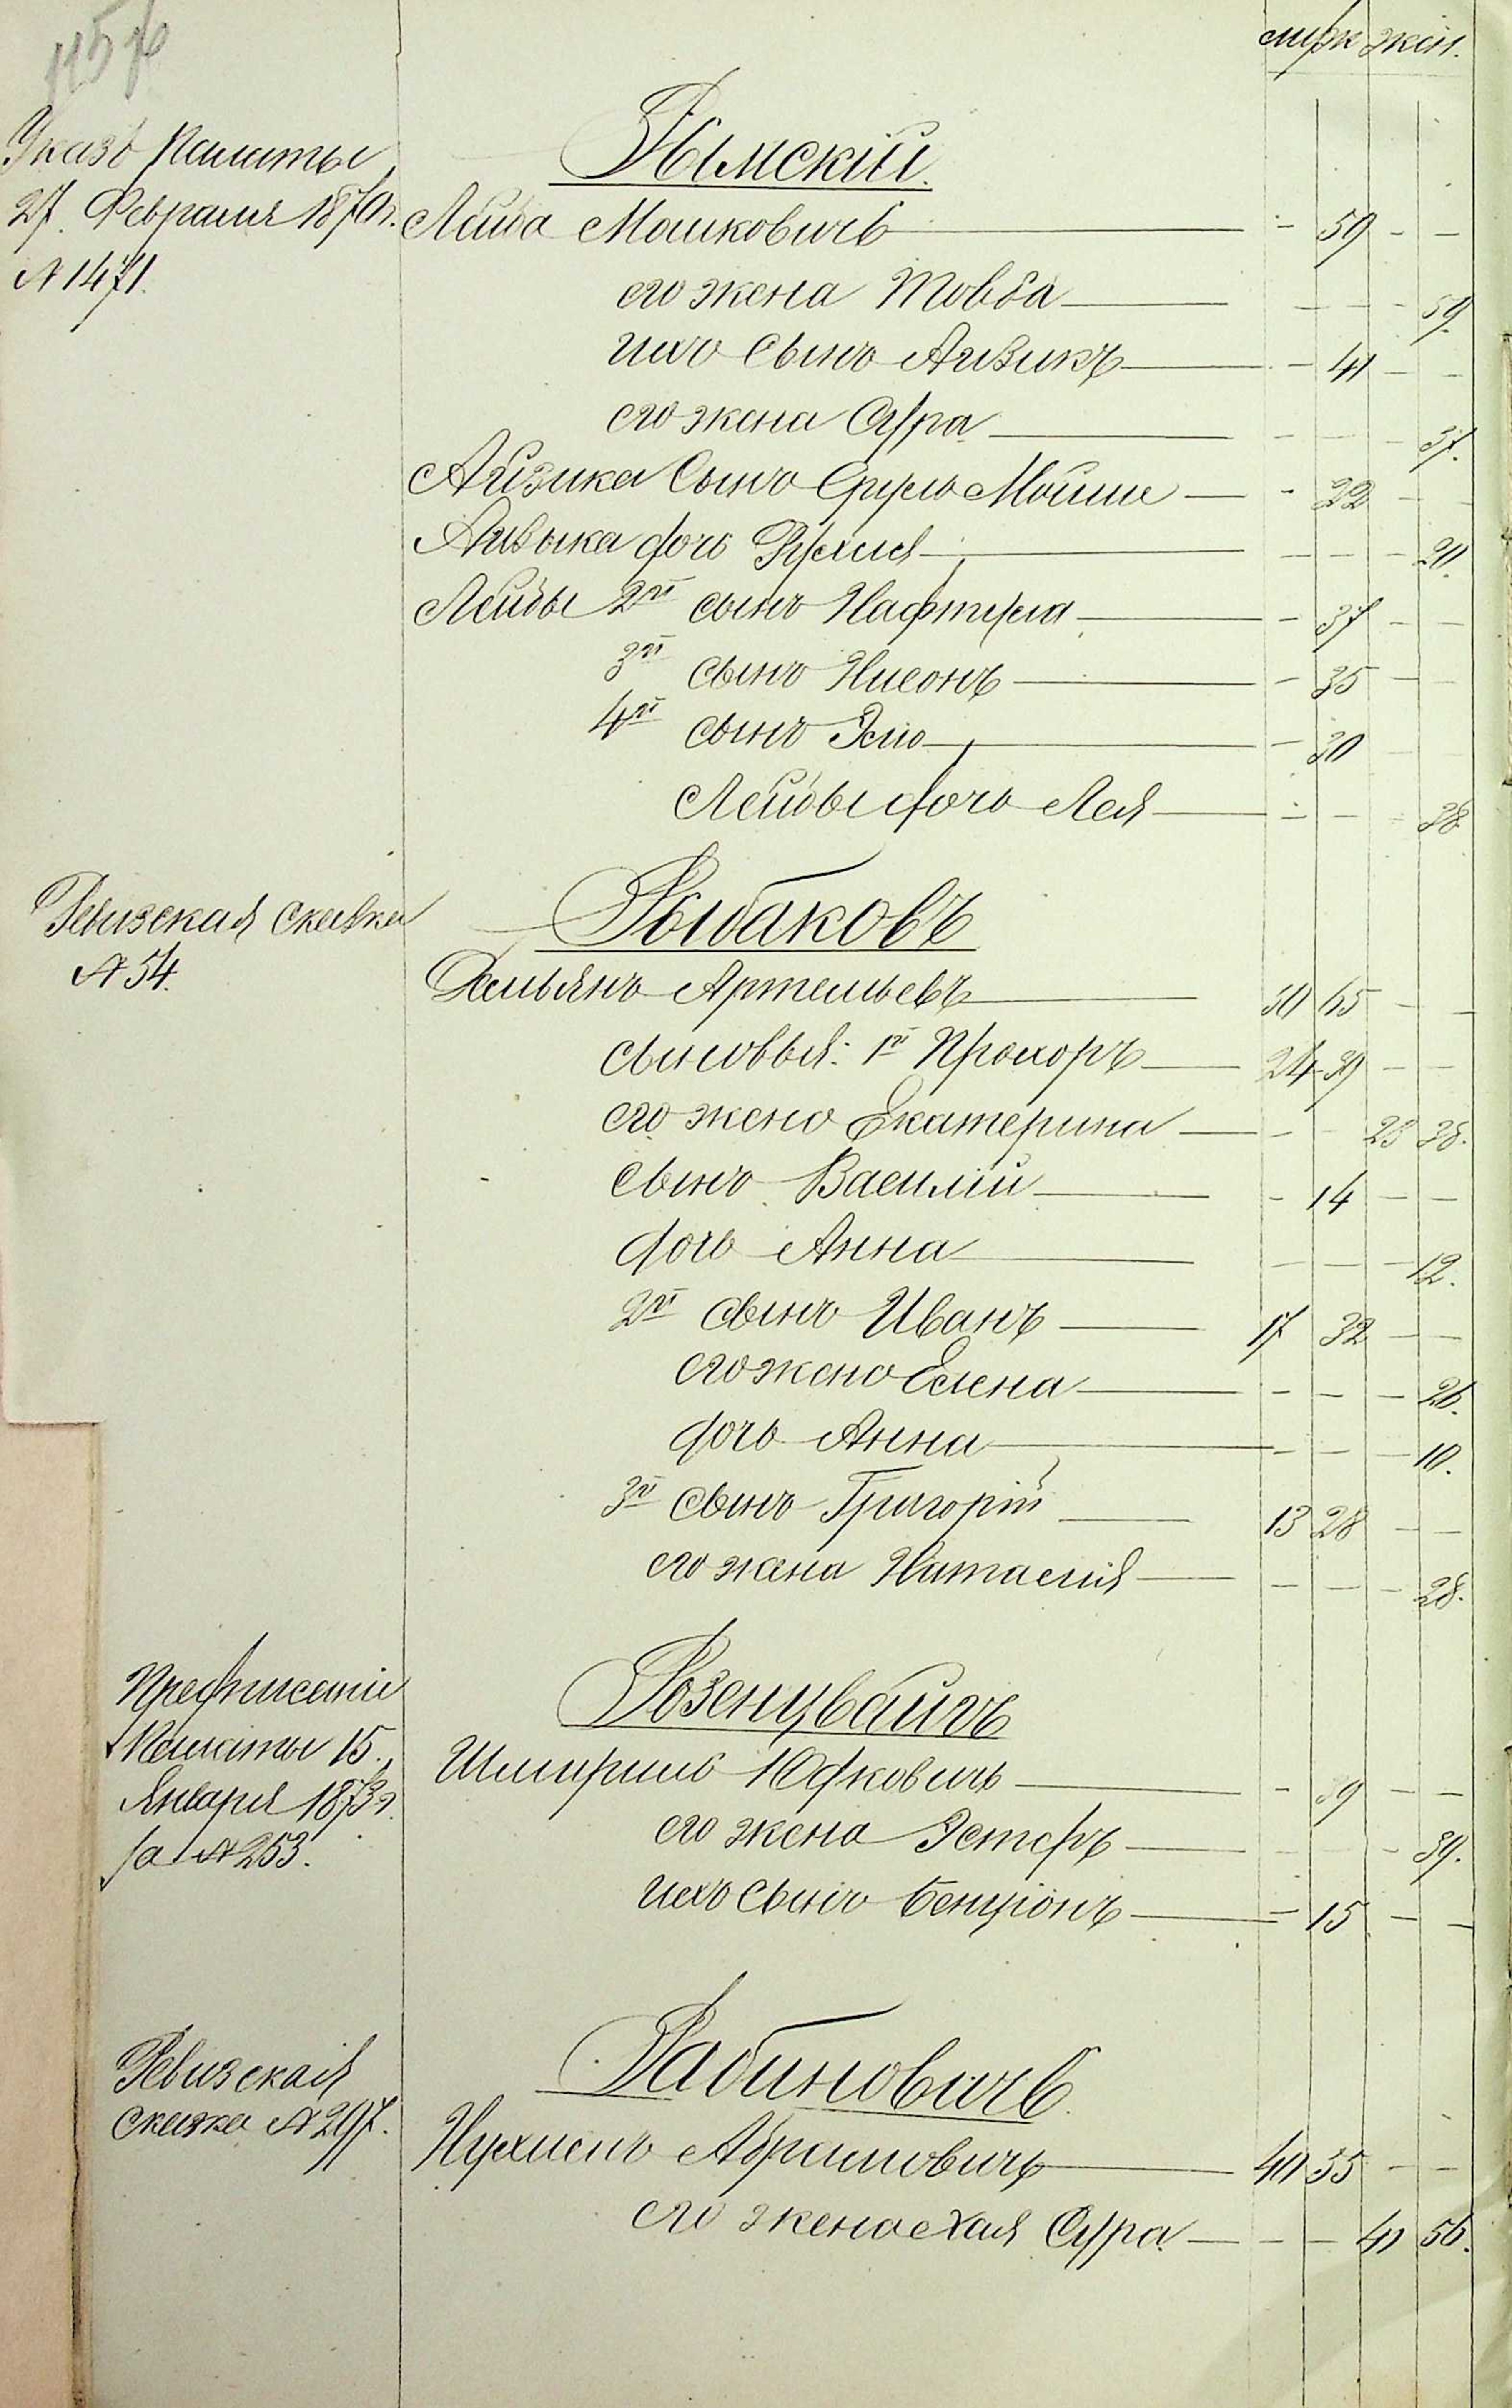 муж жен.
Указъ Палаты
27. Февраля 1870 г.
№ 1471.
Рымскій.
Лейба Мошковичъ — - 59 - -
его жена Товба — - - - 59.
ихъ сынъ Айзикъ — - 41 - -
его жена Сура — - - - 37.
Айзика Сынъ Сруль Мойше — - 22 - -
Айзыка дочь Рухля — - - - 20.
Лейбы 2й сынъ Нафтула — - 37 - -
3й сынъ Нисонъ — - 35 - -
4й сынъ Эліо — - 30 - -
Лейбы дочь Лея — - - - 38
Ревизская сказка
№ 54.
Рыбаковъ
Демьянъ Артемьевъ — 50 65 - -
сыновья: 1й Прохоръ — 24 39 - -
его жена Екатерина — - - 23 38.
сынъ Василій — - 14 - -
дочь Анна — - - - 12.
2й сынъ Иванъ — 17 32 - -
его жена Елена — - - - 26.
дочь Анна — - - - 10.
3й сынъ Григорій — 13 28 - -
его жена Наталія — - - - 28.
Предписаніе
Палаты 15.
Января 1873 г.
за № 253.
Розенцвайгъ
Шмириль Юдковичъ — - 39 - -
его жена Эстеръ — - - - 39.
ихъ Сынъ Бенціонъ — - 15 - -
Ревизская
сказка № 297.
Рабиновичъ.
Нухимъ Абрамовичъ — 40 55 - -
его жена Хая Сура — - - 41 56.